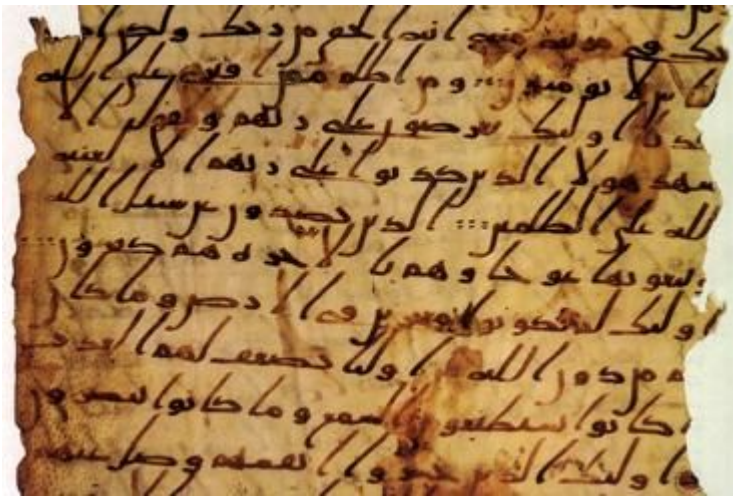 تك في مريه منه انه الحق من ربك ولكن ا
س لا يومنون ومن اظلم ممن افترى على الله
كذبا اوليك يعرضون على ربهم ويقول الا
شهد هولا الذين كذبوا على ربهم الا لعنه
الله على الظلمين الذين يصدون عن سبيل الله
ويبغونها عوجا وهم بالاخره هم كفرون
اوليك لم يكونوا معجزين في الارض وما كان
لهم من دون الله من اوليا يضعف لهم العذب
ما كانوا يستطيعون السمع وما كانوا يبصرون
اوليك الذين خسروا انفسهم وضل عنهم